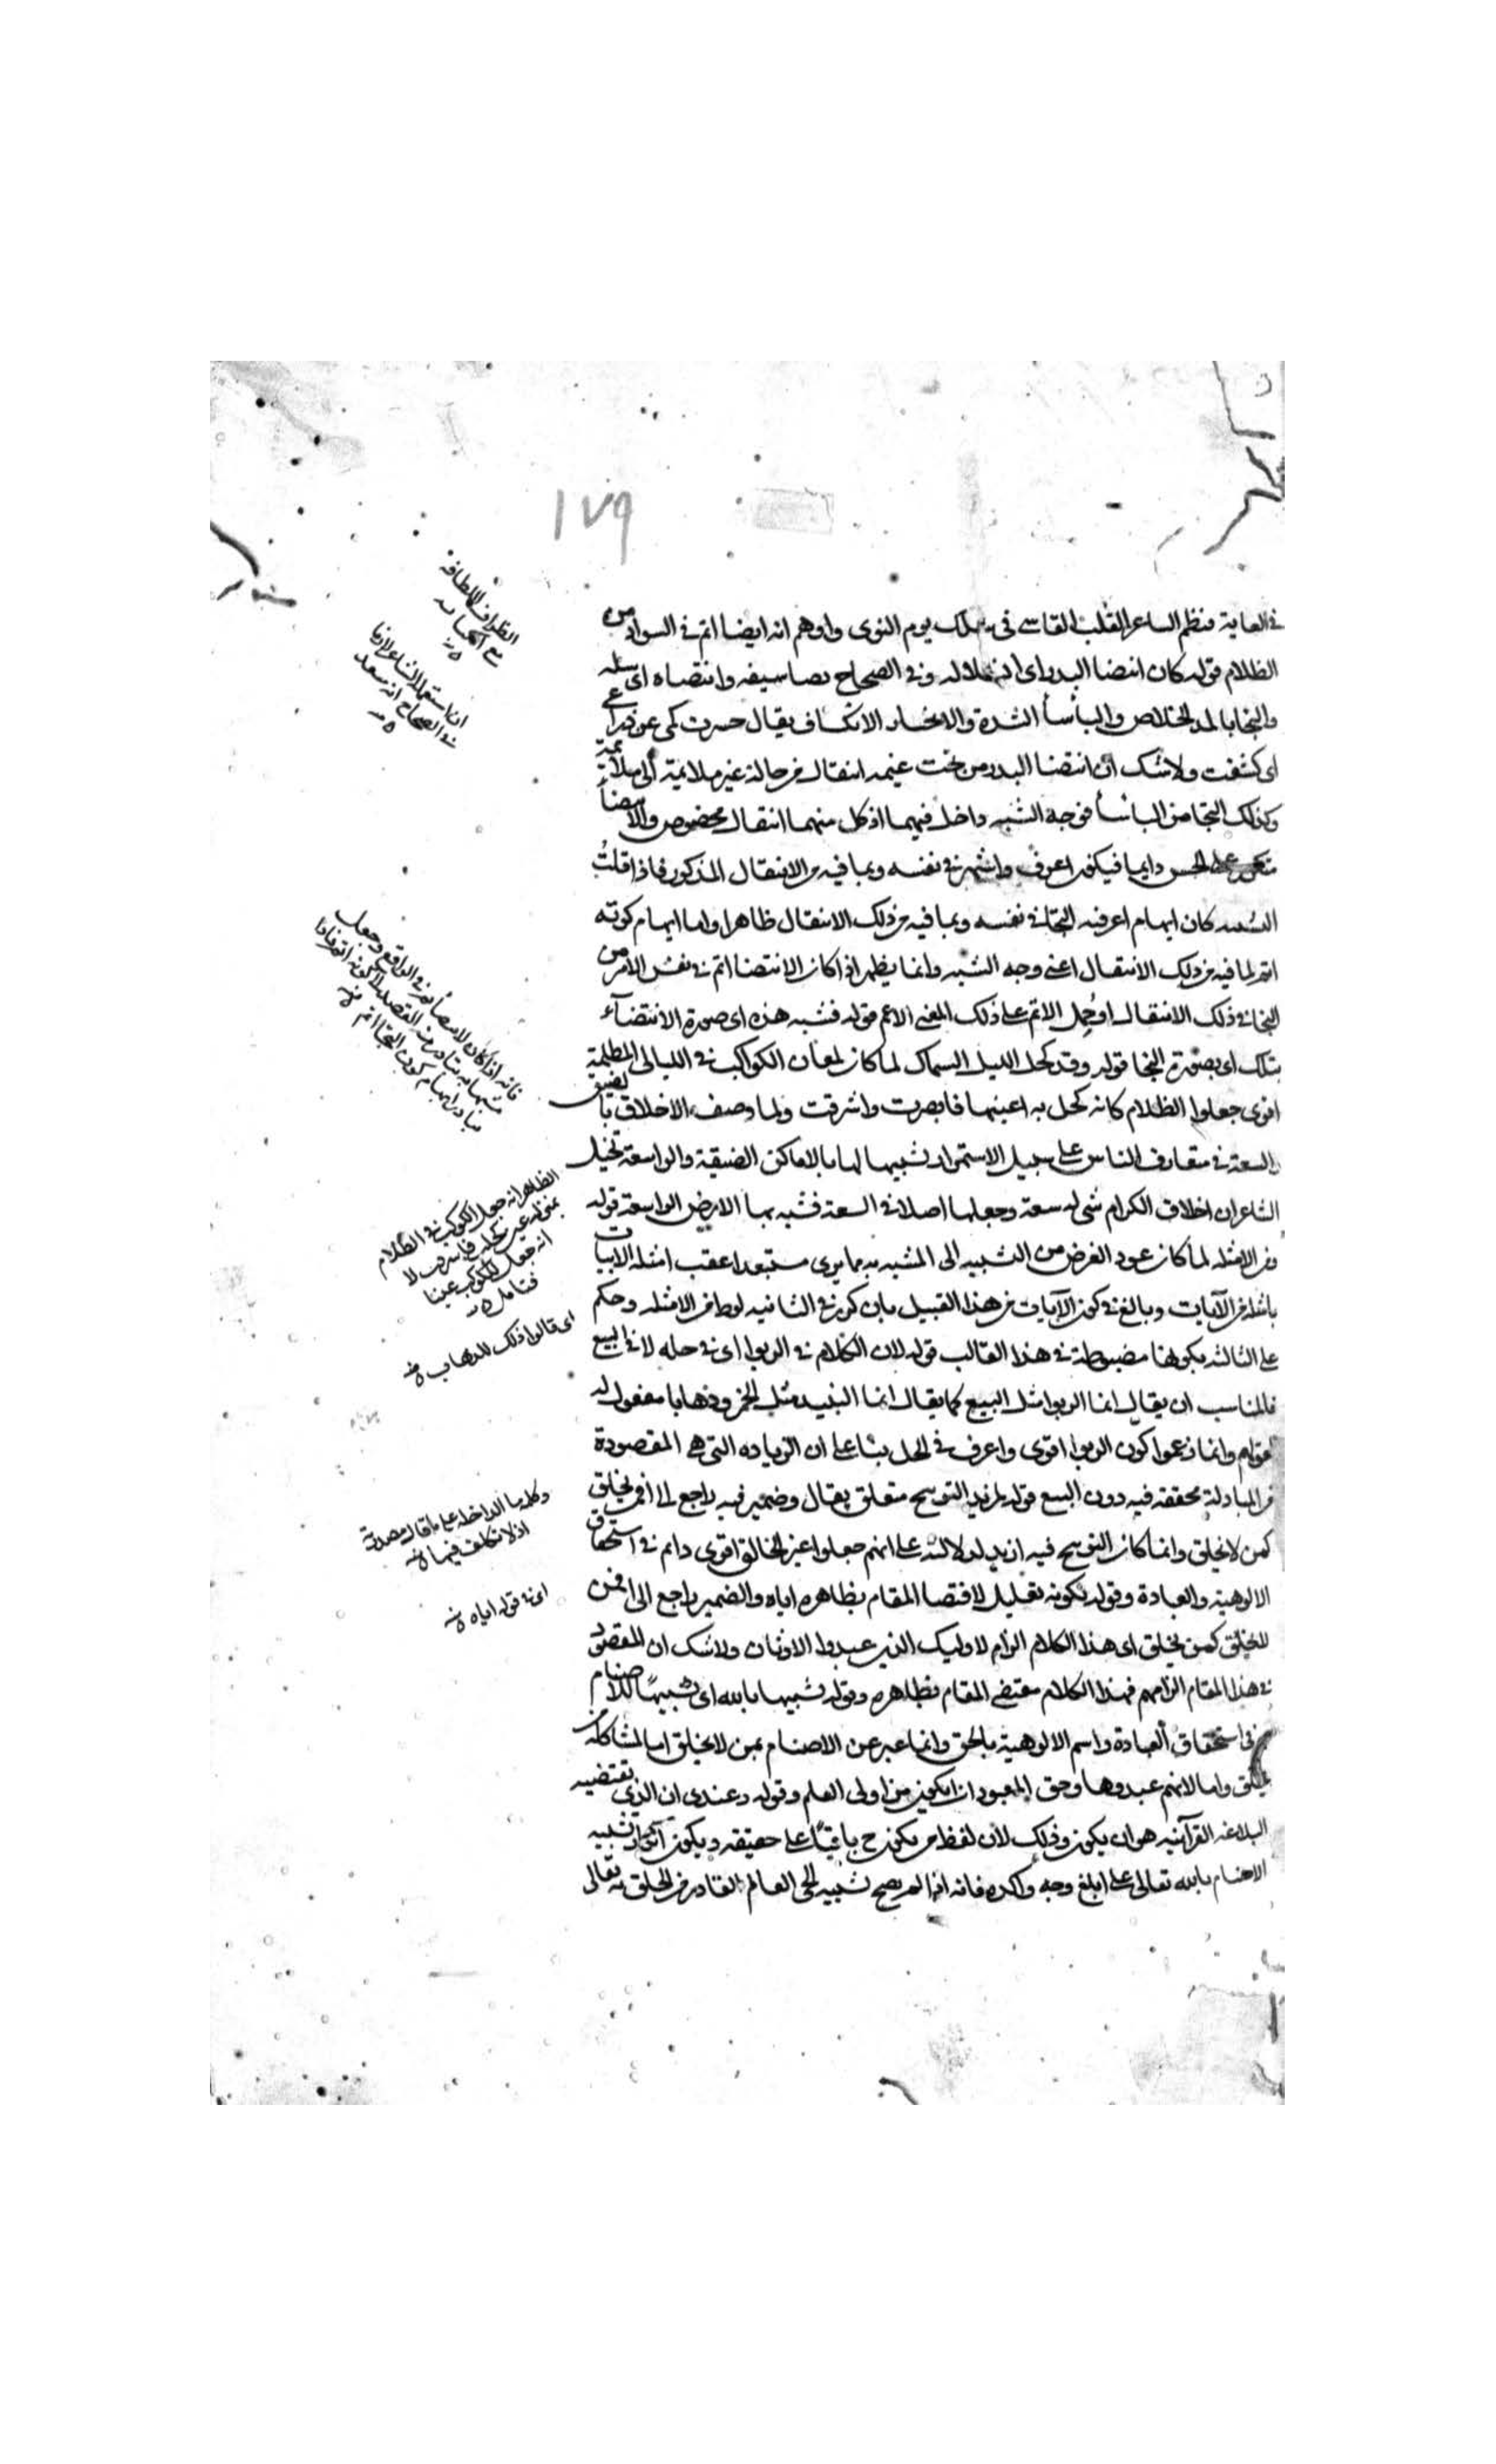 ١٧٩
في الغاية فنظم الشاعر القلب القاسي في سلك يوم النوى واوهم انه ايضا اتم في السواد من
الظلام قوله كان انتضا البدر اى انسلاله وفي الصحاح نضا سيفه وانتضاه اى سله
والنجا بالمد الخلاص والبأسا الشدة والانحسار الانكشاف يقال حسرت كمى عن ذراعى
اى كشفت ولا شك ان انتضا البدر من تحت غيمه انتقال من حالة غير ملايمة الى ملائمة
وكذلك النجا من البأسا فوجه الشبه داخل فيهما اذ كل منهما انتقال مخصوص والانتضا
متكرر على الحس دايما فيكون اعرف واشهر في نفسه وبما فيه من الانتقال المذكور فاذا قلبت
التشبيه كان ايهام اعرفيه النجا في نفسه وبما فيه من ذلك الانتقال ظاهرا واما ايهام كونه
اتم لما فيه من ذلك الانتقال اعنى وجه الشبه وانما يظهر اذا كان الانتضا اتم في نفس الامر من
النجا في ذلك الانتقال او حمل الاتم على ذلك المعنى الاعم قوله فشبه هذه اى صورة الانتضآء
بتلك اى بصورة النجا قوله وقد كحل الليل السماك لما كان لمعان الكواكب في الليالى المظلمة
اقوى جعلوا الظلام كانه كحل به اعينها فابصرت واشرقت ولما وصف الاخلاق بالضيق
والسعة في متعارف الناس على سبيل الاستمرار تشبيها لها بالاماكن الضيقة والواسعة تخيل
الشاعر ان اخلاق الكرام شى له سعة وجعلها اصلا في السعة فشبه بها الارض الواسعة قوله
ومن الامثلة لما كان عود الغرض من التشبيه الى المشبه به مما يرى مستبعدا عقب امثلة الابيات
بامثلة من الآيات وبالغ في كون الآيات من هذا القبيل بان كرر في الثانيه لفظ من الامثله وحكم
على الثالثه بكونها مضبوطة في هذا القالب قوله لان الكلام في الربوا اى في حله لا في البيع
فالمناسب ان يقال انما الربوا مثل البيع كما يقال انما النبيذ مثل الخمر وذهابا مفعول له
لقولهم وانما زعموا كون الربوا اقوى واعرف في الحل بنا على ان الزياده التى هى المقصودة
من المبادلة محققه فيه دون البيع قوله لمزيد التوبيخ متعلق بقال وضمير فيه راجع الى افمن يخلق
كمن لا يخلق وانما كان التوبيخ فيه ازيد لدلالته على انهم جعلوا غير الخالق اقوى واتم في استحقاق
الالوهية والعبادة وقوله بكونه تعليل لاقتضا المقام بظاهره اياه والضمير راجع الى افمن
لا يخلق كمن يخلق اى هذا الكلام الزام لاوليك الذين عبدوا الاوثان ولا شك ان المقصود
في هذا المقام الزامهم فهذا الكلام مقتضى المقام بظاهره وقوله تشبيها بالله اى تشبيهًا للاصنام
في استحقاق العبادة واسم الالوهية بالحق وانما عبر عن الاصنام بمن لا يخلق اما لمشاكلة من
يخلق واما لانهم عبدوها وحق المعبود ان يكون من اولى العلم وقوله وعندى ان الذى تقتضيه
البلاغه القرآنيه هو ان يكون وذلك لان لفظ من يكون ح باقيًا على حقيقته ويكون انكار تشبيه
الاصنام بالله تعالى على ابلغ وجه وآكده فانه اذا لم يصح تشبيه الحى العالم القادر من الخلق به تعالى
ان استعمال الشاعر
في الصحاح انه
فانه اذا كان
الظاهر انه جعل الكوكب في الظلام
انه جعل للكوكب عينا
فتامل
اى قالوا ذلك للذهاب منه
وكلمة ما الداخلة على ما قال مصدرية
اذ لا تكلف فيها منه
اى في قوله اياه منه